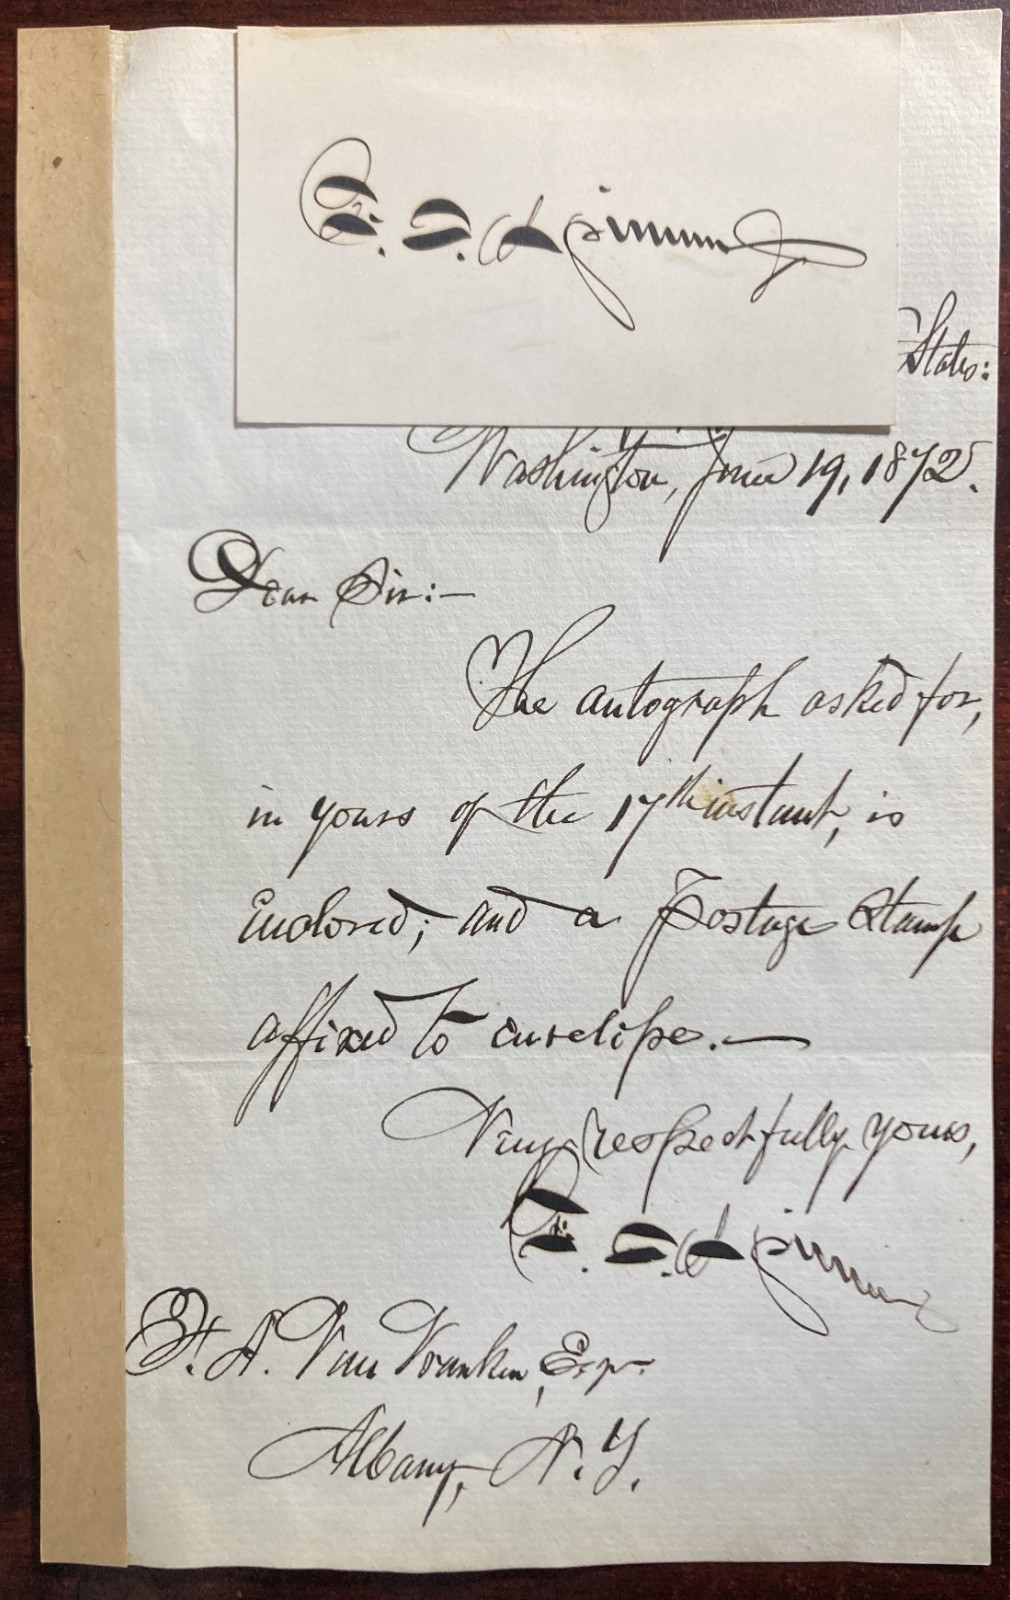 F. E. Spinner
States:
Washington, June 19, 1872.
Dear Sir:—
The autograph asked for,
in yours of the 17th instant, is
Enclosed; and a Postage Stamp
affixed to envelope.—
Very respectfully yours,
F. E. Spinner
F. A. Van Vranken, Esqr.
Albany, N. Y.